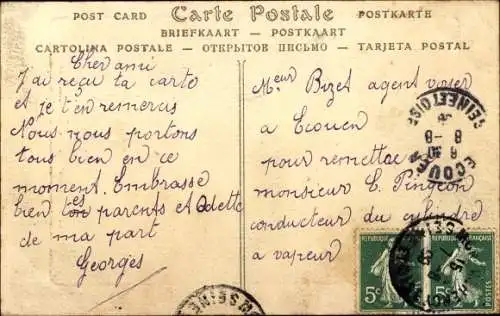 POST CARD Carte Postale POSTKARTE
BRIEFKAART — POSTKAART
CARTOLINA POSTALE — ОТКРЫТОЕ ПИСЬМО — TARJETA POSTAL
Cher ami
J'ai reçu ta carte
et je t'en remercis
Nous nous portons
tous bien en ce
moment. Embrasse
bien tes parents et Odette
de ma part
Georges
Meur Bizet agent voyer
a Ecouen
pour remettre a
monsieur E. Pingeon
conducteur du cylindre
a vapeur
SEINE ET OISE
8 - 8
ECOUEN
RÉPUBLIQUE FRANÇAISE
5c
POSTES
5c